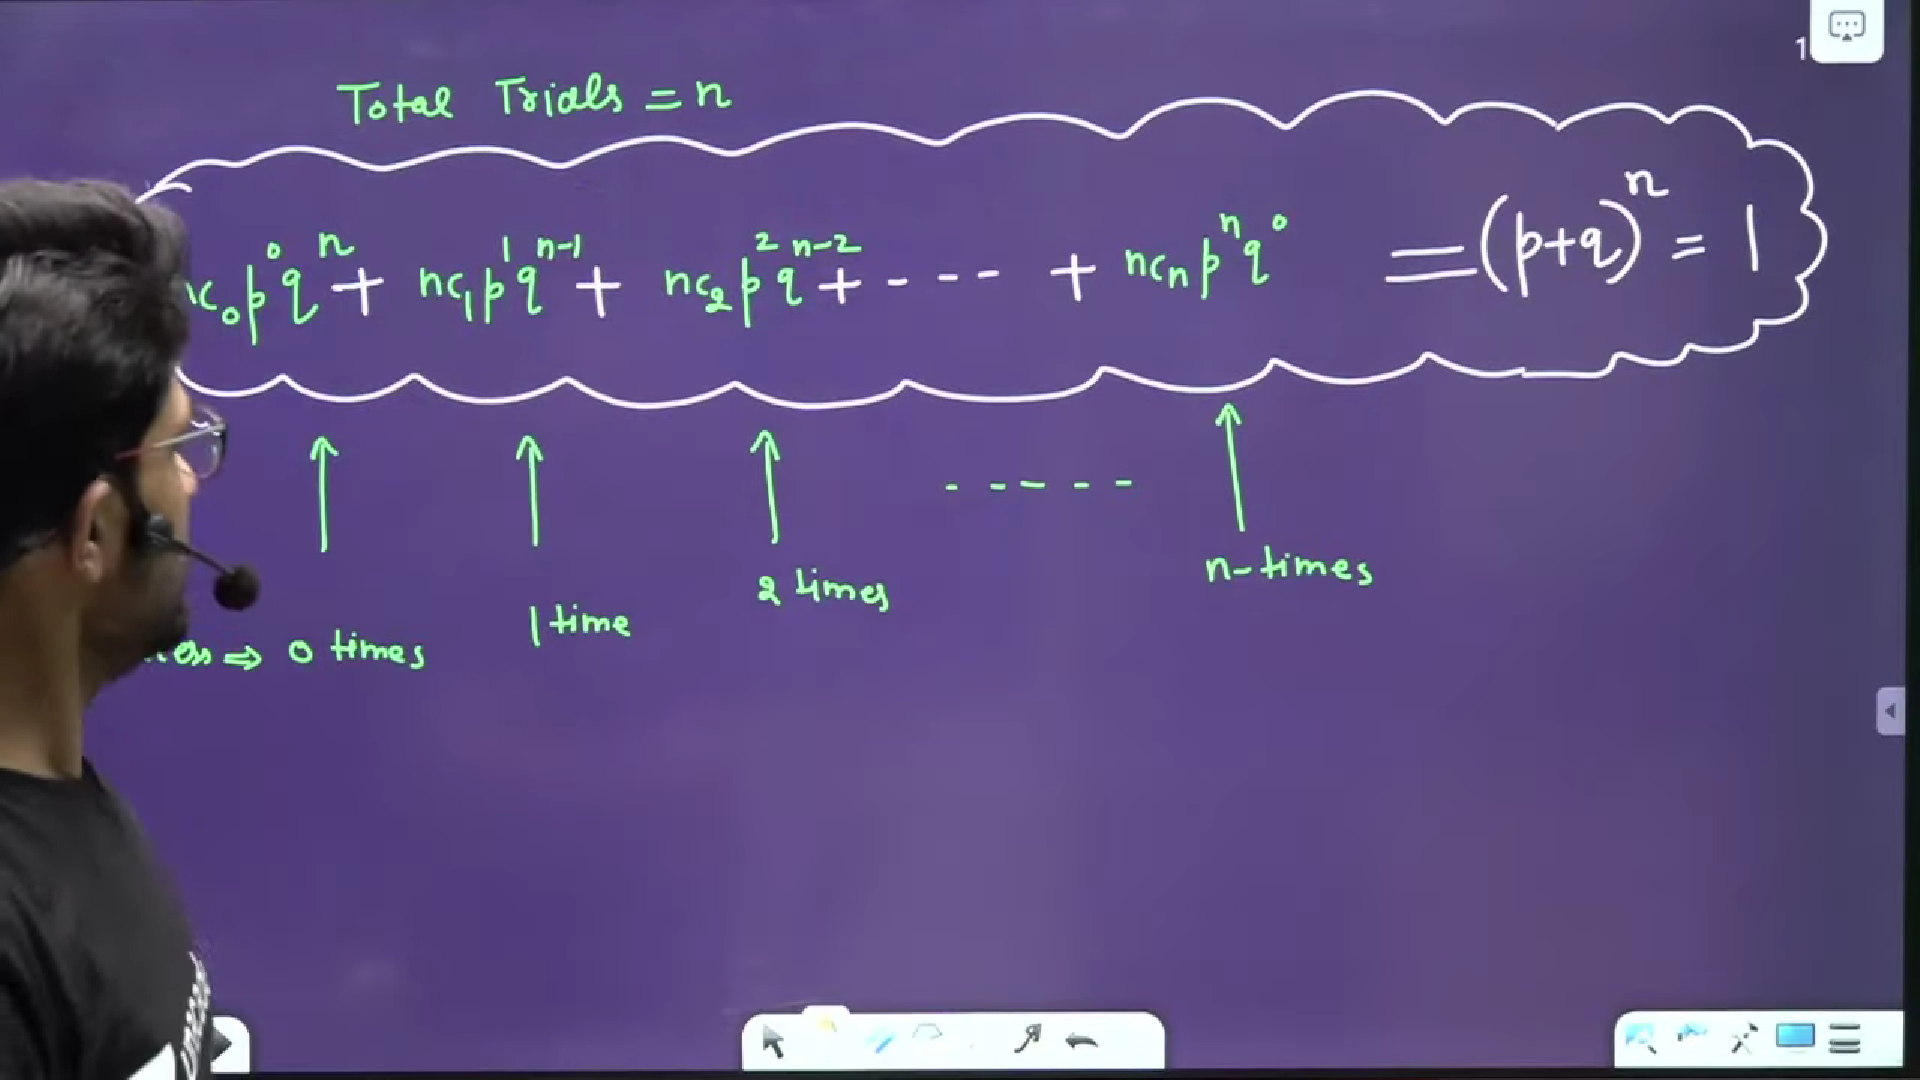 Total Trials = n
1
c₀p⁰qⁿ + nc₁p¹qⁿ⁻¹ + nc₂p²qⁿ⁻² + - - - + ncₙpⁿq⁰ = (p+q)ⁿ = 1
- - - - -
⇒ 0 times 1 time 2 times n-times